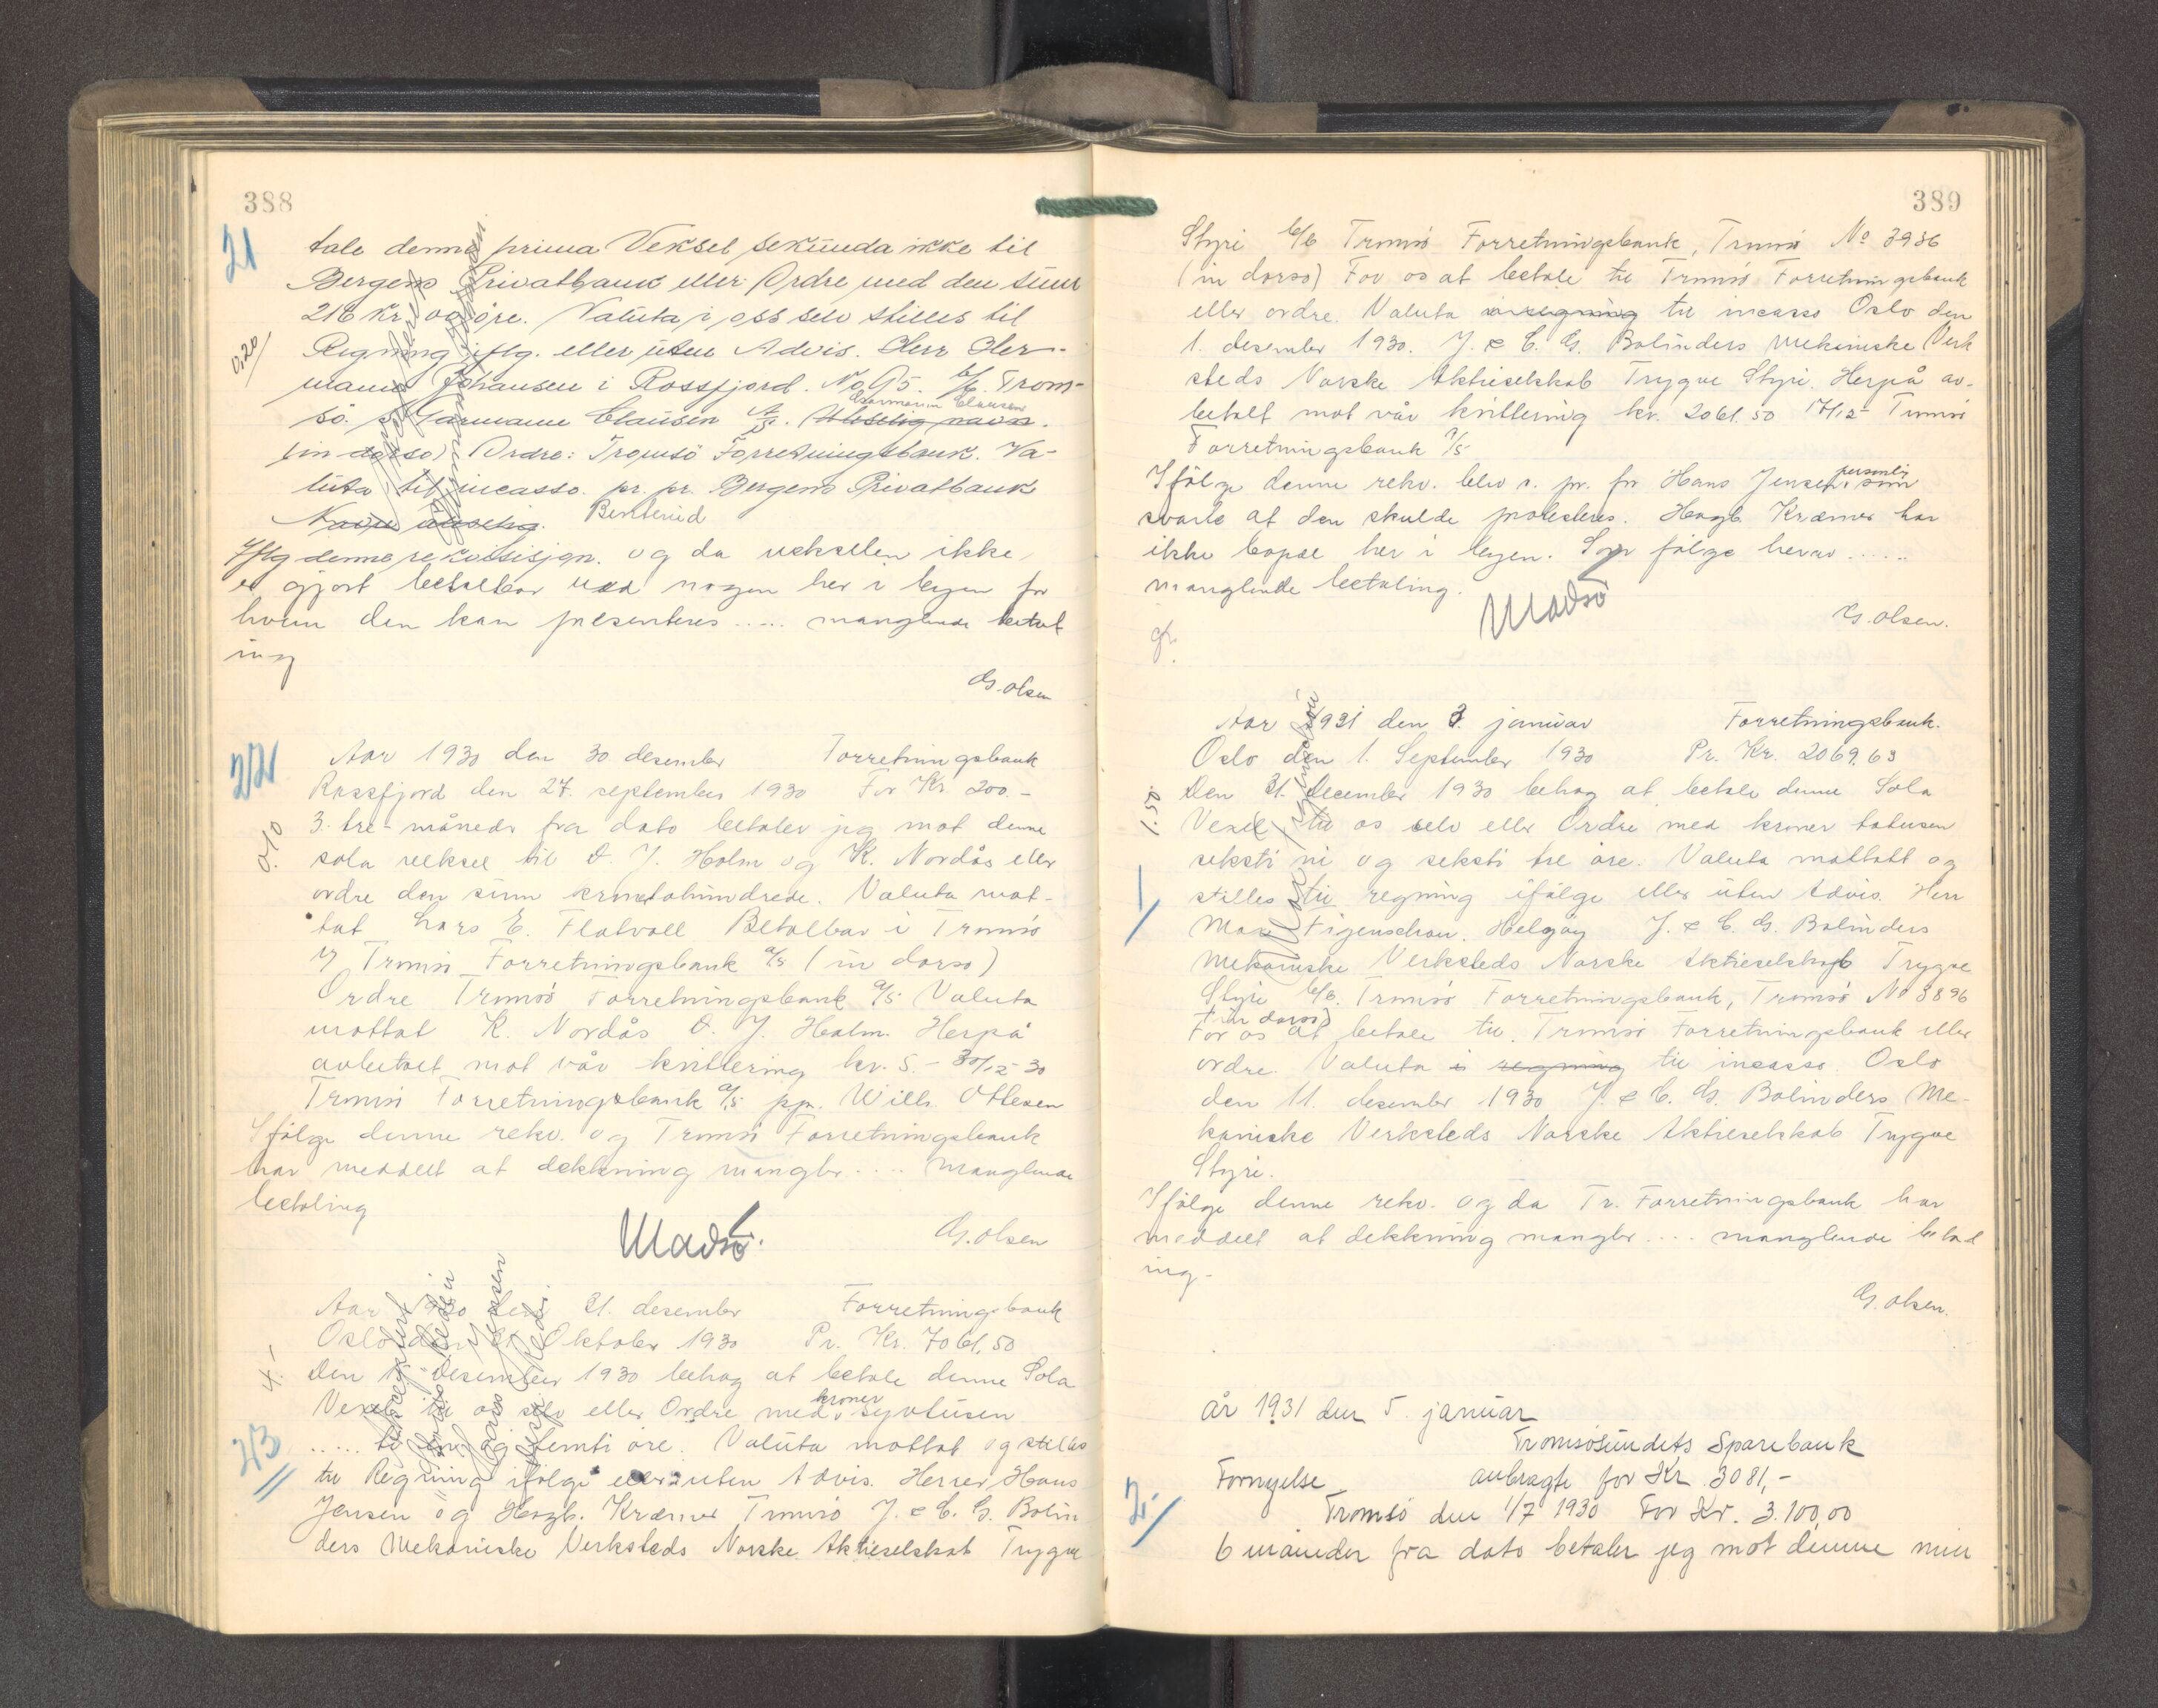 388
21
tale denne prima Veksel sekunda ikke til
Bergens Privatbank eller Ordre med den sum
216 Kr. 00 öre. Valuta i oss selv stilles til
0.20
Regning iflg. eller uten Advis. Herr Her-
mann Johansen i Rossfjord. No 95. b/b. Trom-
sö. Hjarmann Clausen A/S. (Uleselig navn.
(in dorso) Ordre: Tromsö Forretningsbank. Va-
luta til incasso. pr. pr. Bergens Privatbank
Navn uleselig.
Iflg denne rekvisisjon. og da vekselen ikke
er gjort betalbar ved nogen her i byen for
hvem den kan presenteres ..... manglende betal
ing
G. Olsen
22
Aar 1930 den 30 desember Forretningsbank
Rossfjord den 27. september 1930 For Kr. 200 -
0.70
3. tre - måneder fra dato betaler jeg mot denne
sola veksel til O. J. Holm og K. Nordås eller
ordre den sum kroner tohundrede. Valuta mot-
tat Lars E. Flatvoll Betalbar i Tromsö
i Tromsö Forretningsbank A/S (in dorso)
Ordre Tromsö Forretningsbank A/S Valuta
mottat K. Nordås O. J. Holm. Herpå
avbetalt mot vår kvittering kr. 5.- 30/12-30
Tromsö Forretningsbank A/S pp. Wilh. Ottesen
Ifölge denne rekv. og Tromsö Forretningsbank
har meddelt at dekkning mangler .... manglende
betaling
Madsö.
G. Olsen
Aar 1930 den 31. desember Forretningsbank
Oslo den Oktober 1930 Pr. Kr. 7061,50
4.-
Den desember 1930 behag at betale denne Sola
Vexel til os selv eller Ordre med kroner syvtusen
23
..... og femti öre. Valuta mottat og stilles
til Regning ifölge eller uten Advis. Herrer Hans
Jensen og Hagb. Kræmer Tromsö J. & C. G. Bolin
ders Mekaniske Verksteds Norske Aktieselskab Trygve
389
Styri b/b Tromsö Forretningsbank, Tromsö No 3936
(in dorso) For os at betale til Tromsö Forretningsbank
eller ordre. Valuta i regning til incasso Oslo den
1. desember 1930. J. & C. G. Bolinders Mekaniske Verk
steds Norske Aktieselskab Trygve Styri. Herpå av-
betalt mot vår kvittering kr. 2061.50 17/12- Tromsö
Forretningsbank A/S
Ifölge denne rekv. blev v. pr. for Hans Jensen personlig som
svarte at den skulde protesteres. Hagb. Kræmer har
ikke bopæl her i byen. Som fölge herav .....
manglende betaling.
Madsö
G. Olsen.
Aar 1931 den 3. januar Forretningsbank.
Oslo den 1. September 1930 Pr. Kr. 2069.63
1.50
Den 31. December 1930 behag at betale denne Sola
Vexel til os selv eller Ordre med kroner totusen
seksti ni og seksti tre öre. Valuta mottatt og
1
stilles til regning ifölge eller uten Advis. Herr
Max Figenschou. Helgöy J. & C. G. Bolinders
Mekaniske Verksteds Norske Aktieselskab Trygve
Styri b/b. Tromsö Forretningsbank, Tromsö No 3896
(in dorso)
For os at betale til Tromsö Forretningsbank eller
ordre. Valuta i regning til incasso. Oslo
den 11. desember 1930 J. & C. G. Bolinders Me-
kaniske Verksteds Norske Aktieselskab Trygve
Styri.
Ifölge denne rekv. og da Tr. Forretningsbank har
meddelt at dekkning mangler .... manglende betal
ing-
G. Olsen.
år 1931 den 5. januar
Tromsösundets Sparebank
Fornyelse anbragte for Kr. 3081,-
2
Tromsö den 1/7 1930 For Kr. 3.100,00
6 måneder fra dato betaler jeg mot denne min